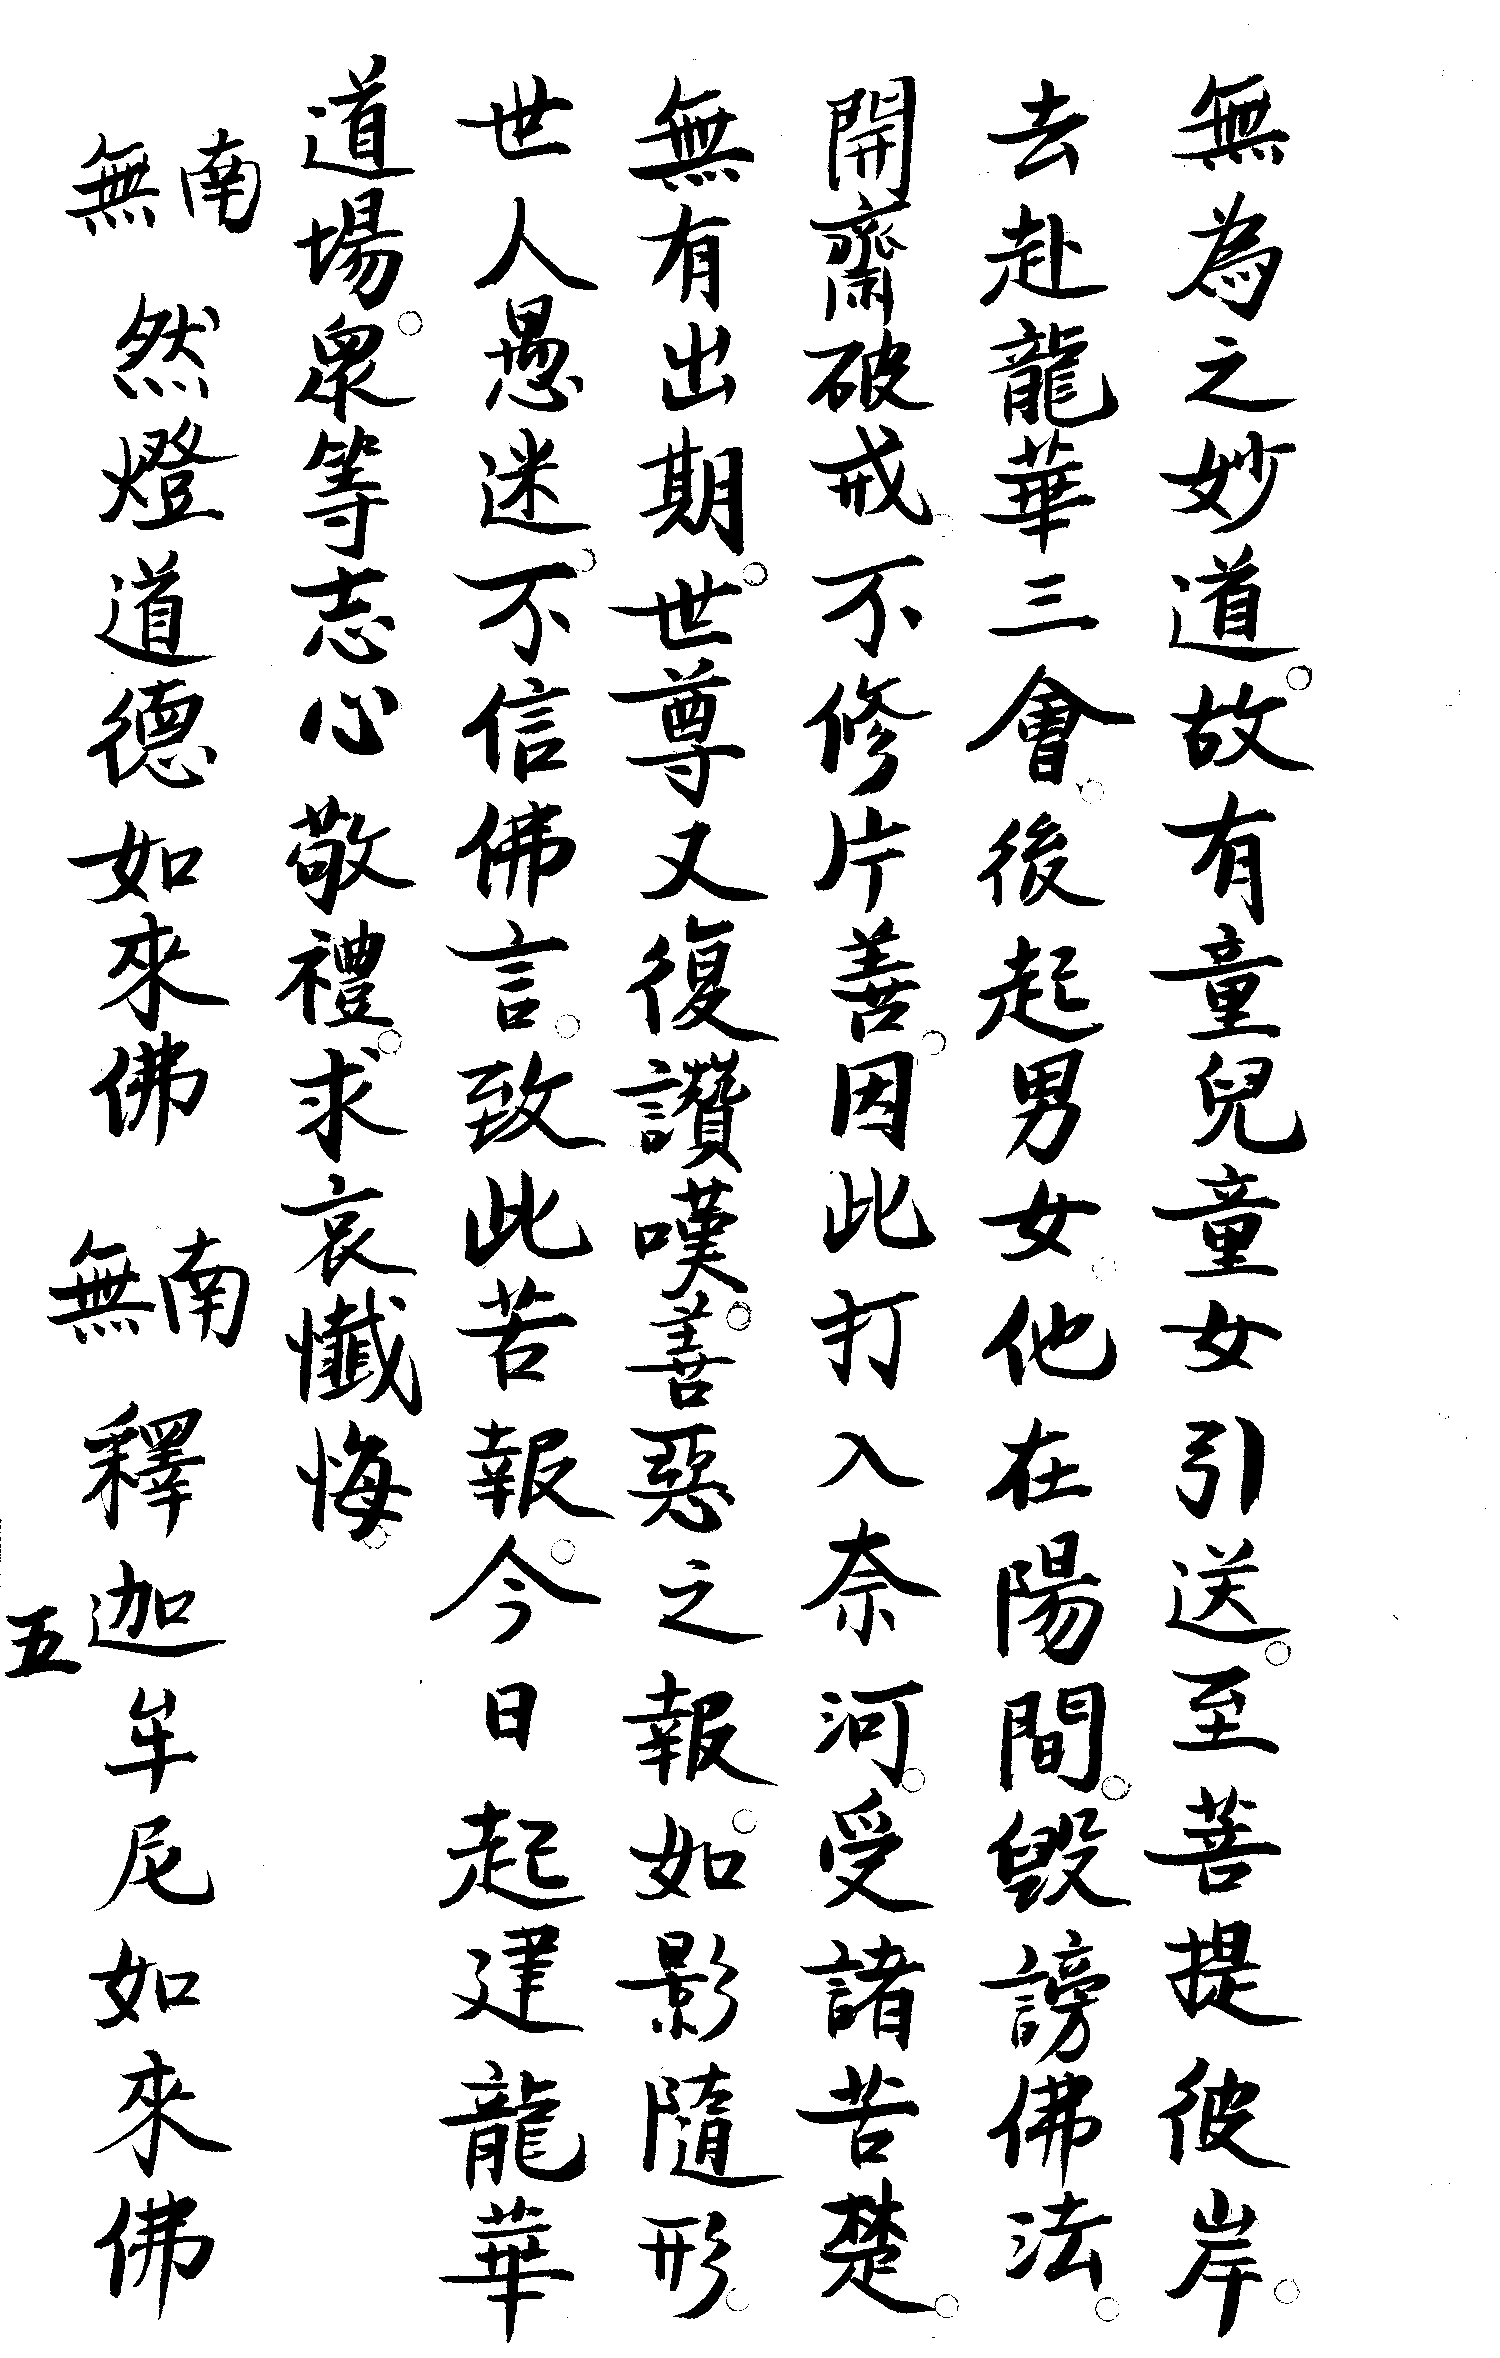 無為之妙道。故有童兒童女引送。至菩提彼岸。
去赴龍華三會。後起男女。他在陽間。毀謗佛法。
開齋破戒。不修片善。因此打入奈河。受諸苦楚。
無有出期。世尊又復讚嘆。善惡之報。如影隨形。
世人愚迷。不信佛言。致此苦報。今日起建龍華
道場。眾等志心敬禮。求哀懺悔。
南無然燈道德如來佛 南無釋迦牟尼如來佛
五